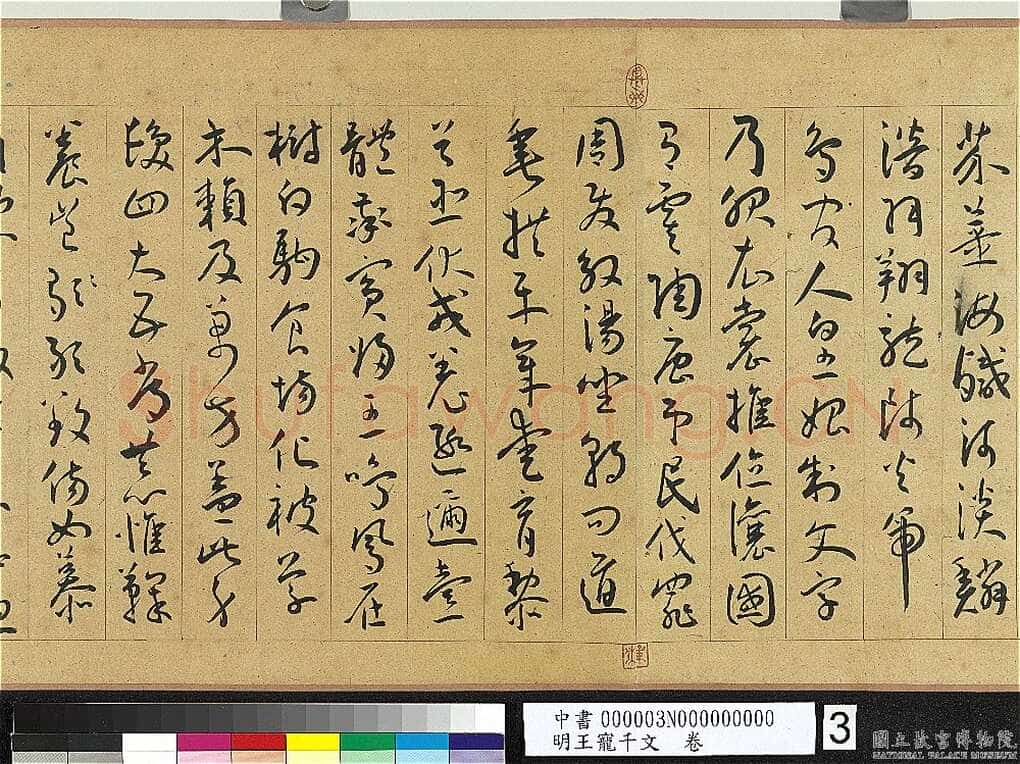 芥薑海鹹河淡鱗
潛羽翔龍師火帝
鳥官人皇始制文字
乃服衣裳推位讓國
有虞陶唐弔民伐罪
周發殷湯坐朝問道
垂拱平章愛育黎
首臣伏戎羌遐邇壹
體率賓歸王鳴鳳在
樹白駒食場化被草
木賴及萬方蓋此身
髮四大五常恭惟鞠
養豈敢毀傷女慕
Shufawang.CN
中書 000003N000000000
明王寵千文 卷
3
國立故宮博物院
NATIONAL PALACE MUSEUM